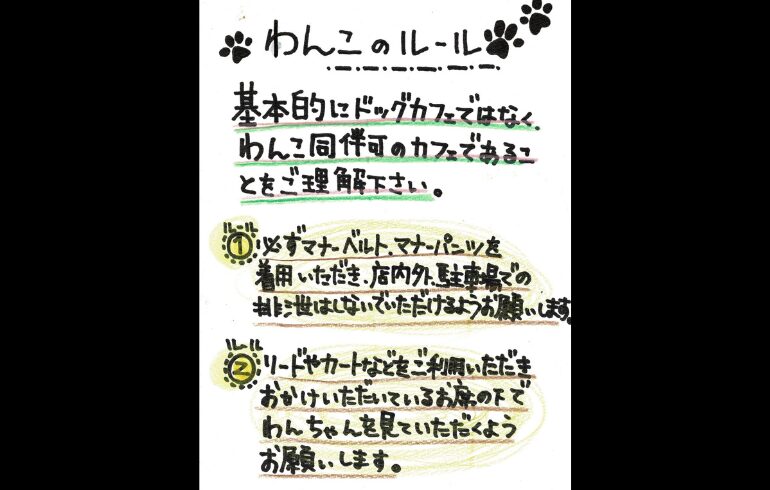 わんこのルール
基本的にドッグカフェではなく、
わんこ同伴可のカフェであるこ
とをご理解下さい。
ルール
① 必ずマナーベルト、マナーパンツを
着用いただき、店内外、駐車場での
排泄はしないでいただけるようお願いします。
ルール
② リードやカートなどをご利用いただき
おかけいただいているお席の下で
わんちゃんを見ていただくよう
お願いします。